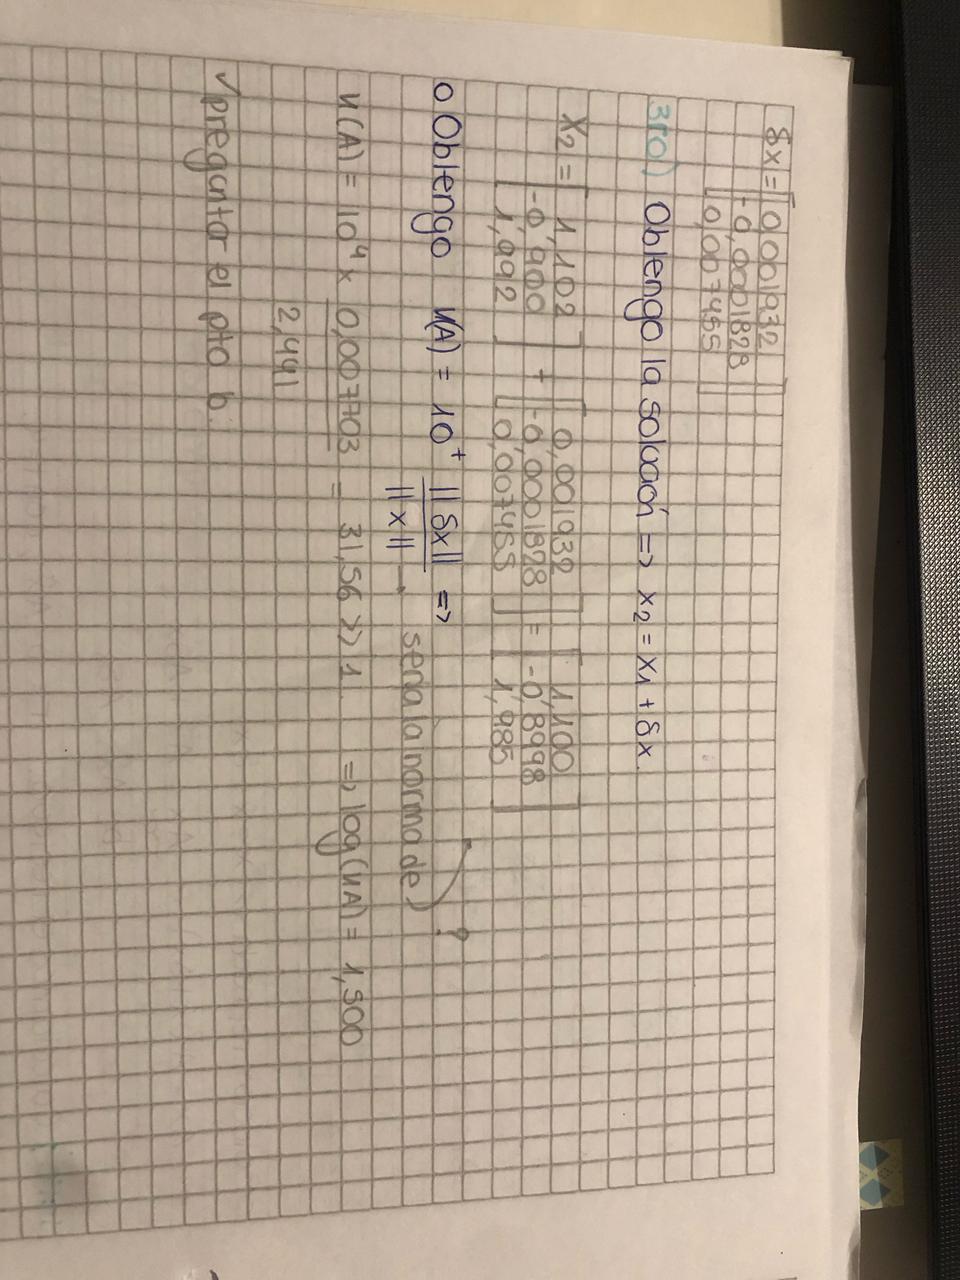 δx = [0,001932
-0,0001828
0,007455]
3ro) Obtengo la solución => x2 = x1 + δx.
x2 = [1,102 -0,900 1,992] + [0,001932 -0,0001828 0,007455] = [1,100 -0,8998 1,985]
o Obtengo K(A) = 10^t ||δx|| / ||x|| =>
→ seria la norma de) ?
K(A) = 10^4 x 0,007703 / 2,441 = 31,56 >> 1 => log(KA) = 1,500
✓ preguntar el pto b.